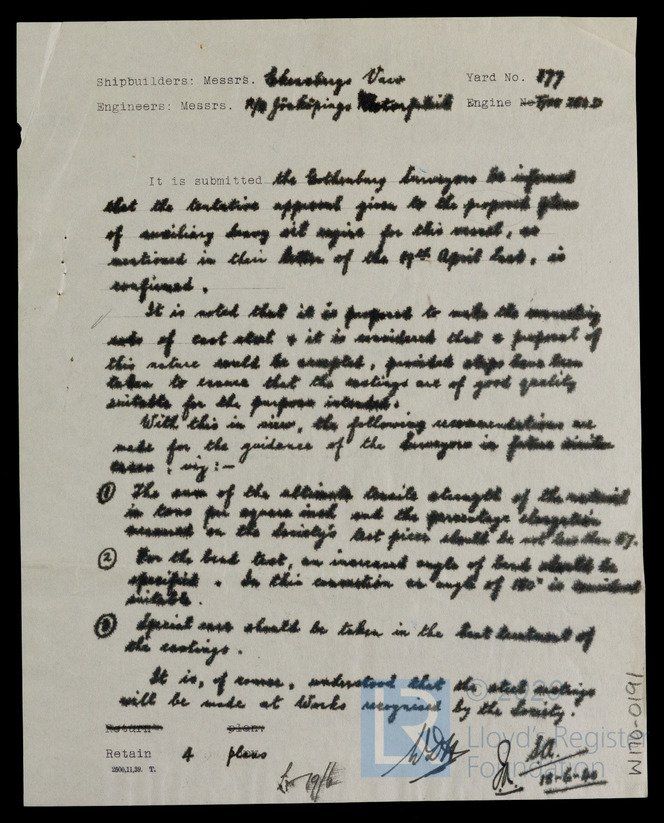 Shipbuilders: Messrs. Ekensbergs Varv Yard No. 177
Engineers: Messrs. A/B Jönköpings Motorfabrik Engine No Type
It is submitted the Gothenburg Surveyors be informed
that the tentative approval given to the proposed plans
of auxiliary heavy oil engine for this vessel, as
mentioned in their letter of the April last, is
confirmed.
It is noted that it is proposed to make the connecting
rods of cast steel & it is considered that a proposal of
this nature could be accepted, provided steps have been
taken to ensure that the castings are of good quality
suitable for the purpose intended.
With this in view, the following recommendations are
made for the guidance of the Surveyors in future similar
cases, viz:-
① The sum of the ultimate tensile strength of the material
in tons per square inch and the percentage elongation
measured on the Society's test piece should be not less than 57.
② For the bend test, an increased angle of bend should be
specified. In this connection an angle of 180° is considered
suitable.
③ Special care should be taken in the heat treatment of
the castings.
It is, of course, understood that the steel castings
will be made at Works recognised by the Society.
Return plan.
Retain 4 plans
2500,11,39. T.
19/6
18-6-40
© 2020
Lloyd's Register
Foundation
W170-0191